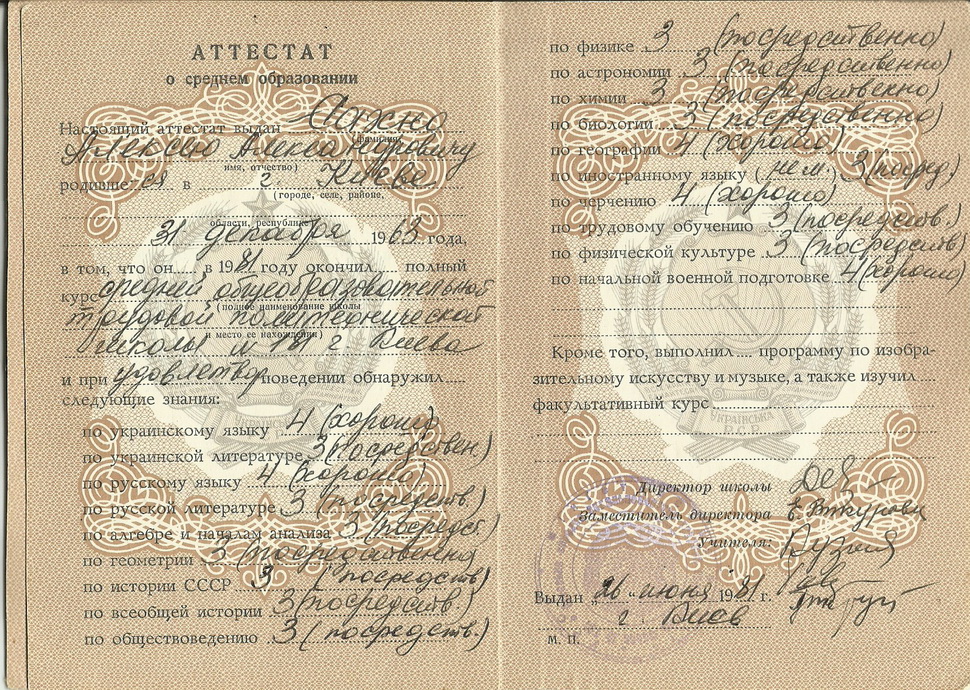 АТТЕСТАТ
о среднем образовании
Настоящий аттестат выдан Сахно
(фамилия,
Алексею Александровичу
имя, отчество)
родивше муся в г. Киеве
(городе, селе, районе,
области, республике)
31 декабря 1963 года,
в том, что он в 1981 году окончил полный
курс средней общеобразовательной
(полное наименование школы
трудовой политехнической
и место ее нахождения)
школы № г. Киева
и при удовлетвор поведении обнаружил
следующие знания:
по украинскому языку 4 (хорошо)
по украинской литературе 3 (посредствен.)
по русскому языку 4 (хорошо)
по русской литературе 3 (посредств)
по алгебре и началам анализа 3 (посредст.)
по геометрии 3 (посредственно)
по истории СССР 3 (посредств)
по всеобщей истории 3 (посредств.)
по обществоведению 3 (посредств.)
по физике 3 (посредственно)
по астрономии 3 (посредственно)
по химии 3 (посредственно)
по биологии 3 (посредственно)
по географии 4 (хорошо)
по иностранному языку (нем.) 3 (посред.)
по черчению 4 (хорошо)
по трудовому обучению 3 (посредств.)
по физической культуре 3 (посредств)
по начальной военной подготовке 4 (хорошо)
Кроме того, выполнил программу по изобра-
зительному искусству и музыке, а также изучил
факультативный курс
УКРАЇНСЬКА
РСР
Директор школы
Заместитель директора
Учителя:
Выдан „26" июня 1981 г.
г. Киев
М. П.